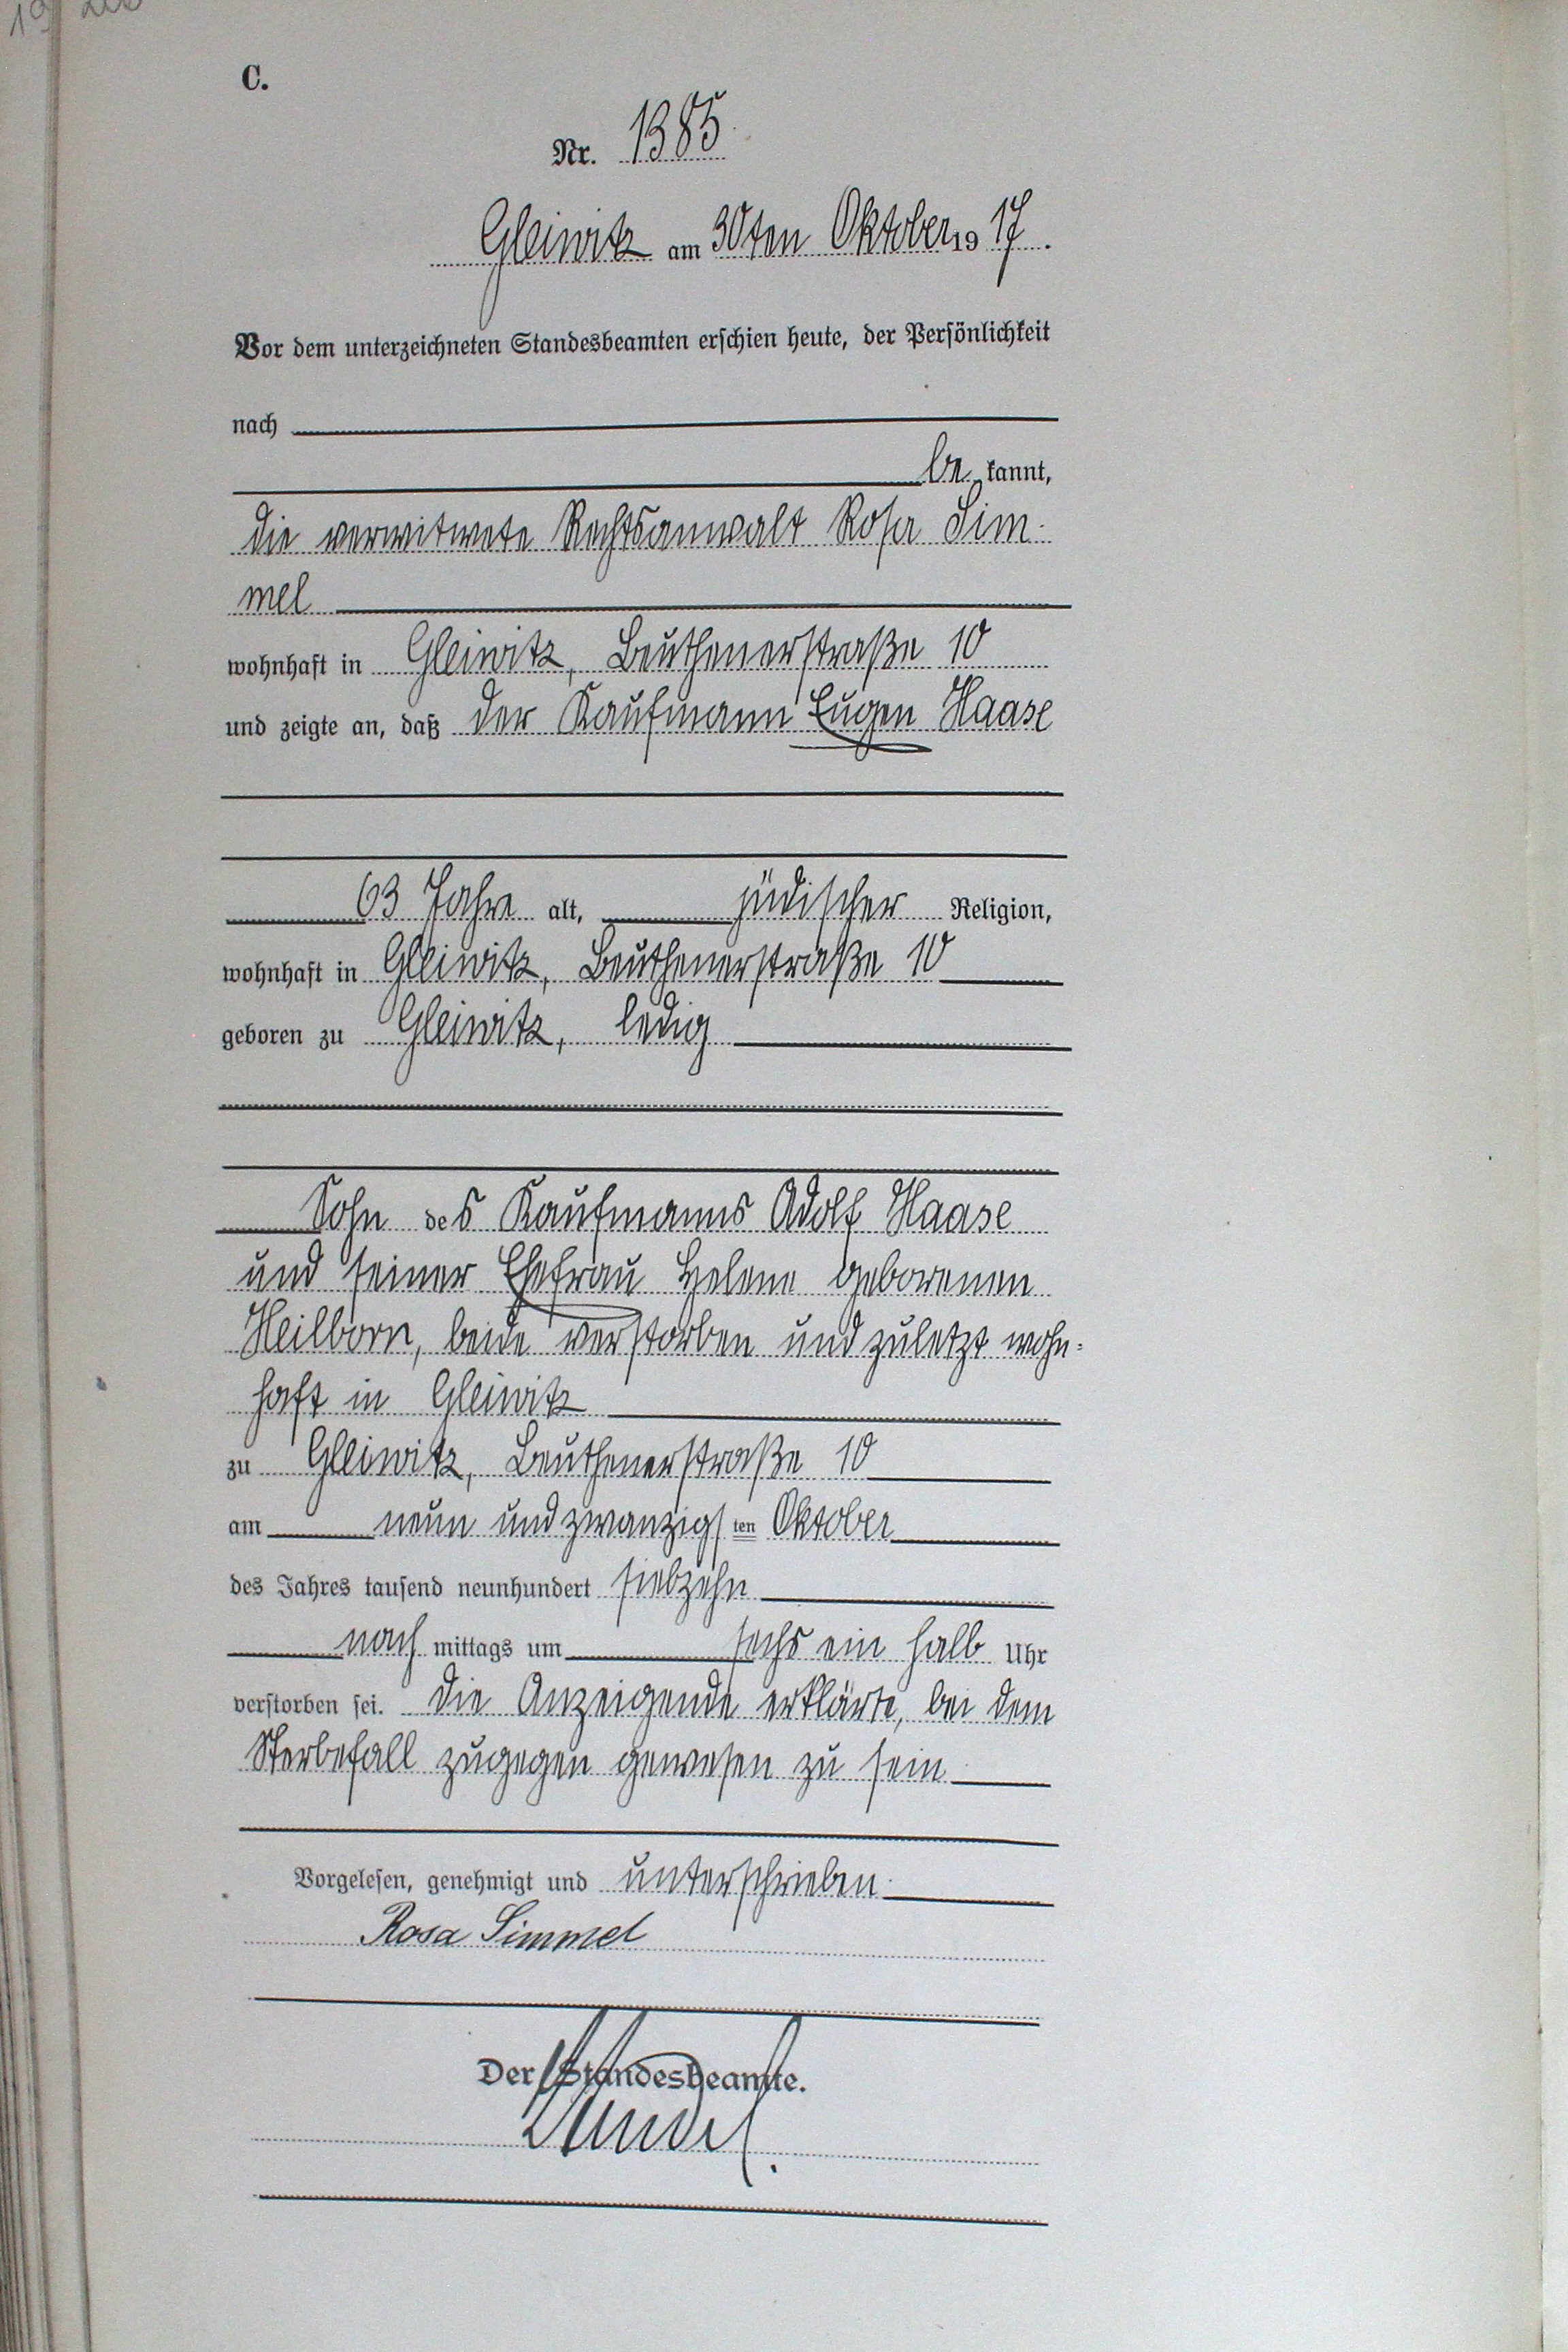 C.
Nr. 1385
Gleiwitz am 30ten Oktober 19 17.
Vor dem unterzeichneten Standesbeamten erschien heute, der Persönlichkeit
nach
be kannt,
die verwitwete Rechtsanwalt Rosa Sim-
mel
wohnhaft in Gleiwitz, Beuthenerstraße 10
und zeigte an, daß der Kaufmann Eugen Haase
63 Jahre alt, jüdischer Religion,
wohnhaft in Gleiwitz, Beuthenerstraße 10
geboren zu Gleiwitz, ledig
Sohn des Kaufmanns Adolf Haase
und seiner Ehefrau Helene geborenen
Heilborn, beide verstorben und zuletzt wohn=
haft in Gleiwitz
zu Gleiwitz, Beuthenerstraße 10
am neun und zwanzigsten Oktober
des Jahres tausend neunhundert siebzehn
nach mittags um sechs ein halb Uhr
verstorben sei. Die Anzeigende erklärte, bei dem
Sterbefall zugegen gewesen zu sein
Vorgelesen, genehmigt und unterschrieben
Rosa Simmel
Der Standesbeamte.